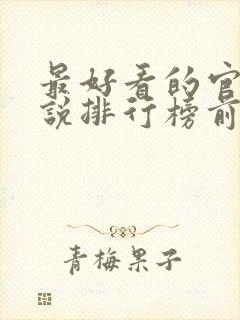 最好看的官
說排行榜前
青梅果子